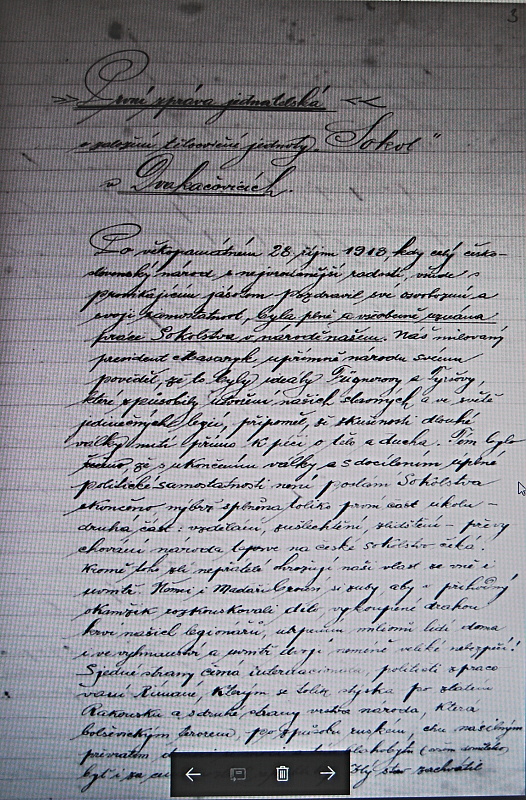 3
První zpráva jednatelská
o založení tělocvičné jednoty „Sokol"
v Dvakačovicích.
Po věkopamátném 28. říjnu 1918, kdy celý česko-
slovenský národ s nejvroucnější radostí, všude s
pronikajícím jásotem pozdravil své osvobození a
svoji samostatnost, byla plně a všeobecně uznána
práce Sokolstva v národě našem. Náš milovaný
president Masaryk upřímně národu svému
pověděl, že to byly ideály Fügnerovy a Tyršovy,
které způsobily utvoření našich slavných a ve světě
jedinečných legií, připomněl, že zkušenosti dlouhé
války nutí přímo k péči o tělo a ducha. Tím bylo
že s ukončením války a s docílením úplné
politické samostatnosti není poslání Sokolstva
skončeno, nýbrž splněna toliko první část úkolu –
druhá část: vzdělání, zušlechtění, – převy
chování národa teprve na české sokolstvo čeká!
Kromě toho zlí nepřátelé ohrožují naši vlast ze vně i
uvnitř. Němci i Maďaři brousí si zuby, aby v příhodný
okamžik rozkouskovali dílo, vykoupené drahou
krví našich legionářů, utrpením milionů lidí doma
i ve vyhnanství a uvnitř hrozí, neméně veliké nebezpečí!
S jedné strany černá internacionála, političtí zpraco
vaní Římané, kterým se tolik stýská po zlatém
Rakousku a s druhé strany vrstva národa, která
bolševickým terorem, po způsobu ruském, chce násilným
převratem
býti i za zlý stav zachvátil